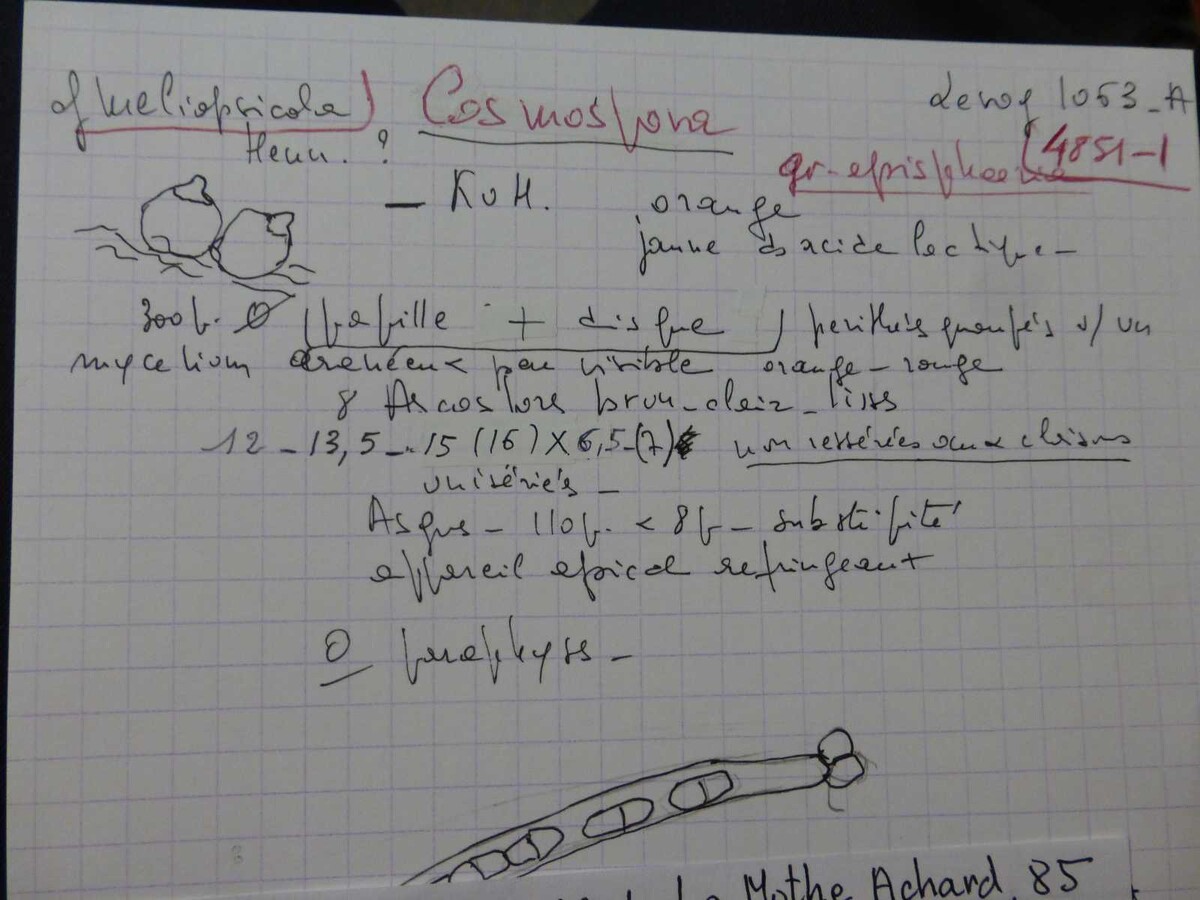 cf meliopsicola) Cosmospora
Henn. ?
Lenoy 1053-A
(4851-1
gr-episphaeria
— KOH. orange
jaune ds acide lactique -
300µ. Ø (papille + disque) périthès groupés s/ un
mycelium aranéeux peu visible orange-rouge
8 Ascospores brun-clair-lisses
12-13,5-15 (16) X 6,5-(7) non resserrées aux cloisons
unisériés -
Asques - 110µ. < 8µ - substipité
appareil apical refringeant
O paraphyses -
La Mothe Achard 85